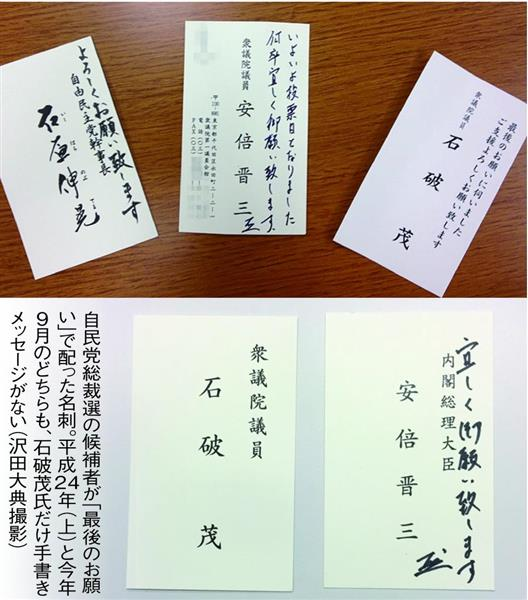 よろしくお願い致します
自由民主党幹事長
石原伸晃
いし はら のぶ てる
いよいよ投票日となりました
何卒宜しく御願い致します
衆議院議員
安倍晋三
東京都千代田区永田町二-二-一
衆議院第一議員会館
電話(〇三)
FAX(〇三)
最後のお願いに伺いました
ご支援よろしくお願い致します
衆議院議員
石破 茂
宜しく御願い致します
内閣総理大臣
安倍晋三
衆議院議員
石破 茂
自民党総裁選の候補者が「最後のお願
い」で配った名刺。平成24年(上)と今年
9月のどちらも、石破茂氏だけ手書き
メッセージがない(沢田大典撮影)